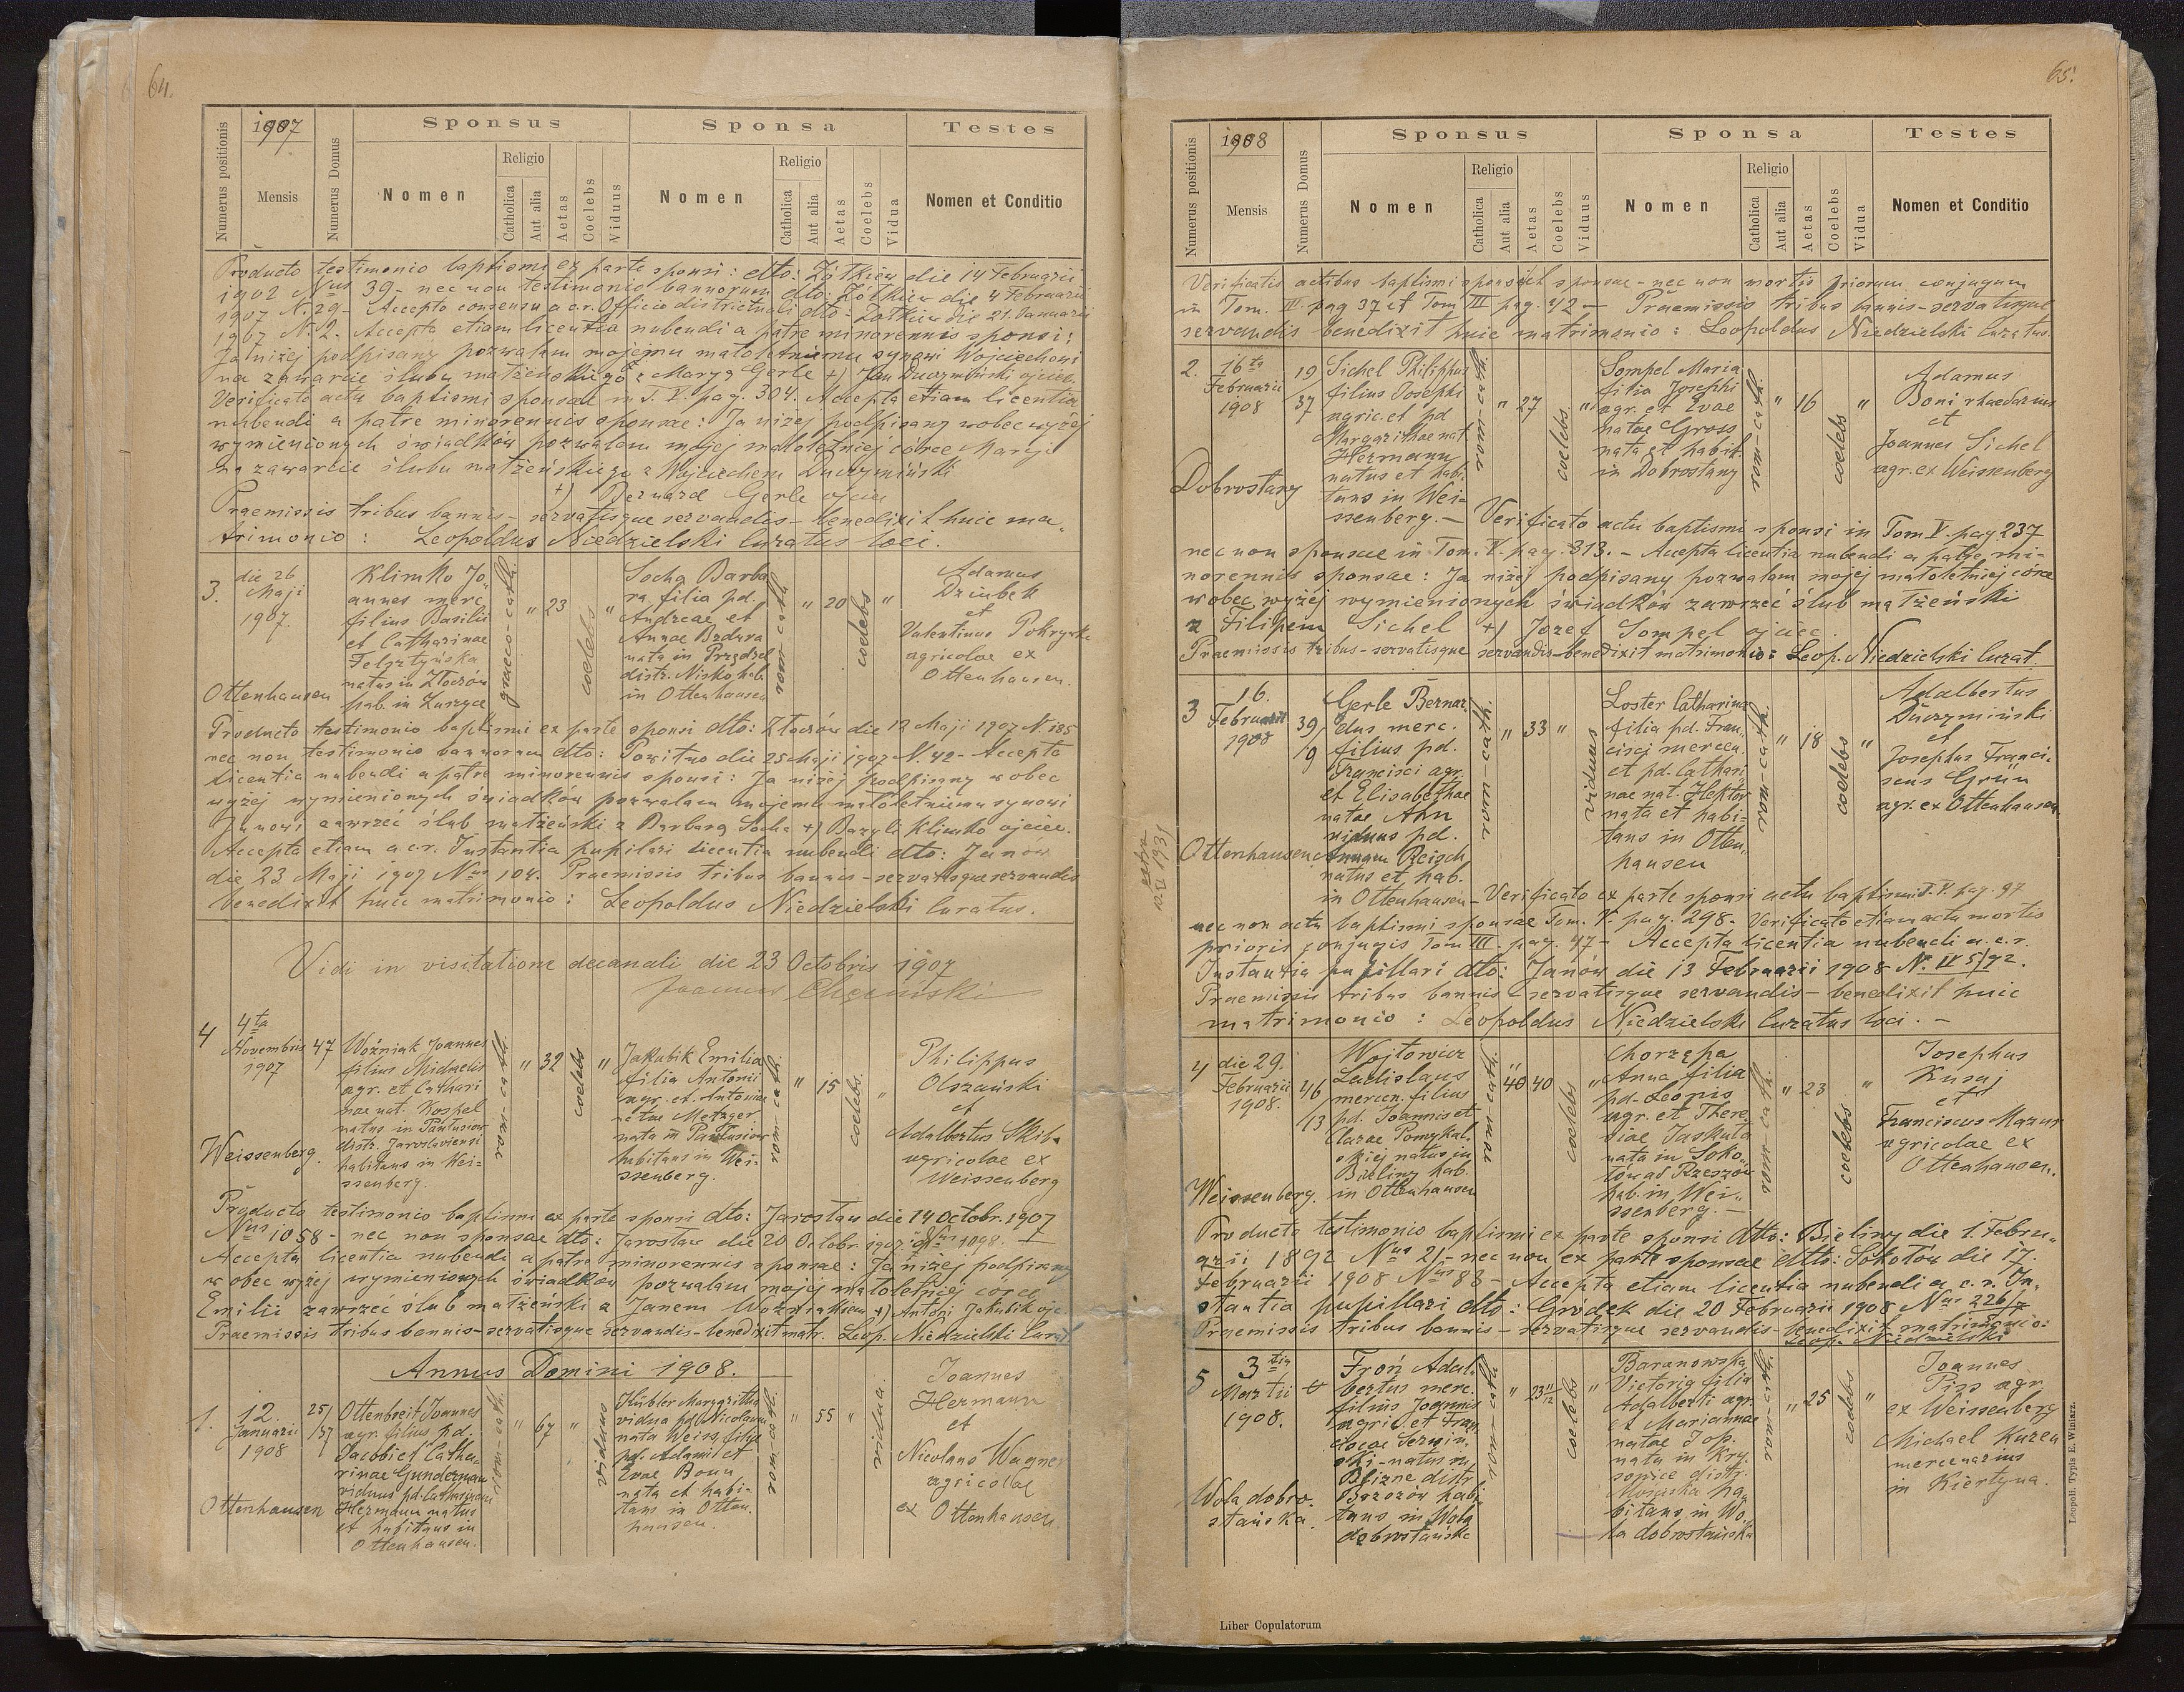 64.
Numerus positionis
1907
Mensis
Numerus Domus
Sponsus
Nomen
Religio
Catholica
Aut alia
Aetas
Coelebs
Viduus
Sponsa
Nomen
Religio
Catholica
Aut alia
Aetas
Coelebs
Vidua
Testes
Nomen et Conditio
Producto testimonio baptismi ex parte sponsi: dto: Żółkiew die 14 Februarii
1902 Nus 39 - nec non testimonio bannorum dto: Żółkiew die 4 Februarii
1907 N. 29 - Accepto consensu a c.r. Officio districtuali dto: Żółkiew die 21. Januarii
1907 N. 2. Accepta etiam licentia nubendi a patre minorennis sponsi:
Ja niżej podpisany pozwalam mojemu małoletniemu synowi Wojciechowi
na zawarcie ślubu małżeńskiego z Maryą Gerle +) Jan Duczymiński ojciec.
Verificato actu baptismi sponsae in T. V. pag. 304. Accepta etiam licentia
nubendi a patre minorennis sponsae: Ja niżej podpisany wobec wyżej
wymienionych świadków pozwalam mojej małoletniej córce Maryi
na zawarcie ślubu małżeńskiego z Wojciechem Duczymiński
+) Bernard Gerle ojciec
Praemissis tribus bannis - servatisque servandis - benedixit huic ma-
trimonio: Leopoldus Niedzielski Curatus loci.
3.
die 26
Maji
1907.
Ottenhausen
Klimko Jo-
annes merc.
filius Basilii
et Catharinae
Felsztyńska
natus in Złoczów
hab. in Zuszyce
graeco-cath.
" 23
coelebs
"
Socha Barba
ra filia pd.
Andreae et
Annae Bzdura
nata in Przędzel
distr. Nisko, hab.
in Ottenhausen
rom. cath.
" 20
coelebs
"
Adamus
Dziubek
et
Valentinus Pokrywka
agricolae ex
Ottenhausen.
Producto testimonio baptismi ex parte sponsi dto: Złoczów die 12 Maji 1907 N. 185
nec non testimonio bannorum dto: Powitno die 25 Maji 1907 N. 42 - Accepta
licentia nubendi a patre minorennis sponsi: Ja niżej podpisany wobec
wyżej wymienionych świadków pozwalam mojemu małoletniemu synowi
Janowi zawrzeć ślub małżeński z Barbarą Socha +) Bazyli Klimko ojciec.
Accepta etiam a c.r. Instantia pupilari licentia nubendi dto: Janów
die 23 Maji 1907 Nus 104. Praemissis tribus bannis - servatisque servandis
benedixit huic matrimonio: Leopoldus Niedzielski Curatus.
Vidi in visitatione decanali die 23 Octobris 1907
Joannes
4
4ta
Novembris
1907
47
Weissenberg.
Woźniak Joannes
filius Michaelis
agr. et Cathari
nae nat. Kospel
natus in
distr. Jaroslaviensi
habitans in Wei-
ssenberg.
rom-cath.
" 32
coelebs
"
Jakubik Emilia
filia Antonii
agr. et. Antoniae
natae Metzger
nata in
habitans in Wei-
ssenberg.
rom-cath.
" 15
coelebs.
"
Philippus
Olszański
et
Adalbertus Skiba
agricolae ex
Weissenberg
Producto testimonio baptismi ex parte sponsi dto: Jarosław die 14 Octobr. 1907
Nus 1058 - nec non sponsae dto: Jarosław die 20 Octobr. 1907 Nus 1098.
Accepta licentia nubendi a patre minorennis sponsae: Ja niżej podpisany
wobec wyżej wymienionych świadków pozwalam mojej małoletniej córce
Emilii zawrzeć ślub małżeński z Janem Woźniakiem +) Antoni Jakubik ojc.
Praemissis tribus bannis - servatisque servandis - benedixit matr. Leop. Niedzielski Curat.
Annus Domini 1908.
1.
12.
Januarii
1908
25/
37
Ottenhausen
Ottenbreit Joannes
agr. filius pd.
Jacobi et Catha-
rinae Gunderman
viduus pd. Catharinam
Hermann natus
et habitans in
Ottenhausen.
rom-cath.
" 67
"
viduus
Hubler Margaritha
vidua pd. Nicolaum
nata Weiss, filia
pd. Adami et
Evae Bonn
nata et habi-
tans in Otten-
hausen.
rom. cath.
" 55
"
vidua.
Joannes
Hermann
et
Nicolaus Wagner
agricolae
ex Ottenhausen.
65.
Numerus positionis
1908
Mensis
Numerus Domus
Sponsus
Nomen
Religio
Catholica
Aut alia
Aetas
Coelebs
Viduus
Sponsa
Nomen
Religio
Catholica
Aut alia
Aetas
Coelebs
Vidua
Testes
Nomen et Conditio
Verificatis actibus baptismi sponsi et sponsae - nec non mortis priorum conjugum
in Tom. III. pag 37 et Tom III pag. 42 - Praemissis tribus bannis - servatisque
servandis benedixit huic matrimonio: Leopoldus Niedzielski Curatus.
2.
16ta
Februarii
1908
19
37
Dobrostany
Sichel Philippus
filius Josephi
agric. et pd
Margarithae nat
Hermann
natus et habi-
tans in Wei-
ssenberg. -
rom-cath.
" 27
coelebs
"
Sompel Maria
filia Josephi
agr. et Evae
natae Gross
nata et habit.
in Dobrostany
rom-cath.
" 16
coelebs
"
Adamus
Boni rhaedarius
et
Joannes Sichel
agr. ex Weissenberg
Verificato actu baptismi sponsi in Tom V. pag. 237
nec non sponsae in Tom. V. pag. 313. - Accepta licentia nubendi a patre mi-
norennis sponsae: Ja niżej podpisany pozwalam mojej małoletniej córce
wobec wyżej wymienionych świadków zawrzeć ślub małżeński
z Filipem Sichel +) Jozef Sompel ojciec.
Praemissis tribus - servatisque servandis - benedixit matrimonio: Leop. Niedzielski Curat.
3
16.
Februarii
1908
39/
19
Ottenhausen
Gerle Bernar-
dus merc.
filius pd.
Francisci agr.
et Elisabethae
natae Ann
viduus pd.
Annam Reisch
natus et hab.
in Ottenhausen
rom-cath.
" 33
"
viduus
Loster Catharina
filia pd. Fran-
cisci mercen.
et pd. Cathari
nae nat. Heptor
nata et habi-
tans in Otten-
hausen
rom-cath.
" 18
coelebs
"
Adalbertus
Duczymiński
et
Josephus Franci-
scus Grün
agr. ex Ottenhausen
- Verificato ex parte sponsi actu baptismi T. V. pag. 97
nec non actu baptismi sponsae Tom. V. pag. 298. Verificato etiam actu mortis
prioris conjugis Tom III. pag. 47 - Accepta licentia nubendi a c.r.
Instantia pupillari dto: Janów die 13 Februarii 1908 N. II 5/92.
Praemissis tribus bannis - servatisque servandis - benedixit huic
matrimonio: Leopoldus Niedzielski Curatus loci. -
4
die 29.
Februarii
1908.
46
13
Weissenberg.
Wojtowicz
Ladislaus
mercen. filius
pd. Joannis et
Clarae Pomykal-
skiej natus in
Bieliny hab.
in Ottenhausen
rom-cath.
40 40
coelebs
"
Chorzępa
Anna filia
pd. Leonis
agr. et There
siae Jaskuła
nata in Soko-
łów ad Rzeszów
hab. in Wei-
ssenberg. -
rom cath.
" 23
coelebs
"
Josephus
Kusaj
et
Franciscus Mazur
agricolae ex
Ottenhausen.
Producto testimonio baptismi ex parte sponsi dtto: Bieliny die 1. Febru-
arii 1892 Nus 21 - nec non ex parte sponsae dtto: Sokołów die 17.
Februarii 1908 Nus 88 - Accepta etiam licentia nubendi a c.r. In-
stantia pupillari dto: Gródek die 20 Februarii 1908 Nus 226/
Praemissis tribus bannis - servatisque servandis - benedixit matrimonio:
Leop. Niedzielski
5
3tia
Martii
1908.
Wola dobro-
stańska.
Froń Adal-
bertus merc.
filius Joannis
agric. et Fran-
ciscae
natus in
Blizne distr.
Brzozów habi-
tans in Wola
dobrostańska
rom-cath.
" 23 11/12
coelebs
"
Baranowska
Victoria filia
Adalberti agr.
et Mariannae
natae Jop.
nata in Kry-
sowice distr.
Mościska ha-
bitans in Wo-
la dobrostańska
rom-cath.
" 25
coelebs
"
Joannes
Piss agr
ex Weissenberg
Michael Kuzen
mercenarius
in Kiertyna.
Liber Copulatorum
Leopoli. Typis E. Winiarz.